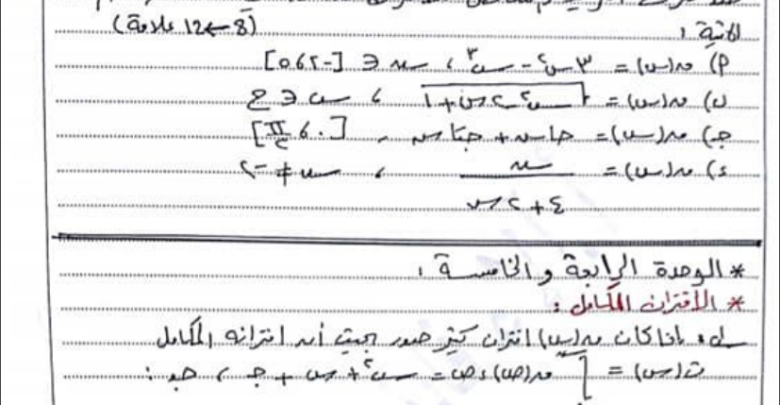 الآتية :
(8 ← 12 علامة)
أ) ق(س) = ٣س٢ - س٣ ، س ∈ [-٢، ٥]
ب) ق(س) = √س٢ - ٢س + ١ ، س ∈ ح
جـ) ق(س) = جاس + جتاس ، [٠، π/٢]
د) ق(س) = س / ٤ + ٢س ، س ≠ -٢
* الوحدة الرابعة والخامسة :
* الاقتران المكامل :
إذا كان ق(س) اقتران كثير حدود بحيث أن اقترانه المكامل
ت(س) = ∫ ق(ص) دص = س٢ + س + جـ ، جد :